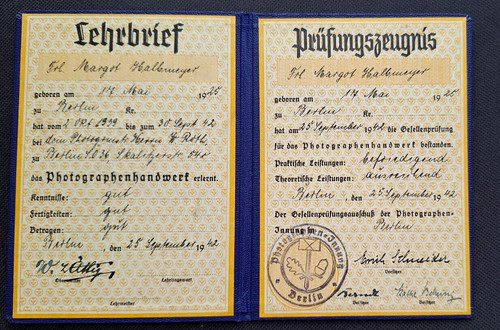 Lehrbrief
Frl. Margot Halbmeyer
geboren am 17. Mai 1925
zu Berlin Kr.
hat vom 2. Okt. 1939 bis zum 30. Sept 42
bei dem Photograph Herrn W. Röth,
zu Berlin S.O.36 Skalitzerstr. 54c
das Photographenhandwerk erlernt.
Kenntnisse: gut
Fertigkeiten: gut
Betragen: gut
Berlin, den 25. September 1942
Obermeister Lehrlingswart
Lehrmeister
Prüfungszeugnis
Frl. Margot Halbmeyer
geboren am 17. Mai 1925
zu Berlin Kr.
hat am 25. September 1942 die Gesellenprüfung
für das Photographenhandwerk bestanden.
Praktische Leistungen: befriedigend
Theoretische Leistungen: ausreichend
Berlin, den 25. September 1942
Der Gesellenprüfungsausschuß der Photographen-
Innung in Berlin
Photographen-Innung
Berlin
Erich Schneider
Vorsitzer
Beisitzer Beisitzer